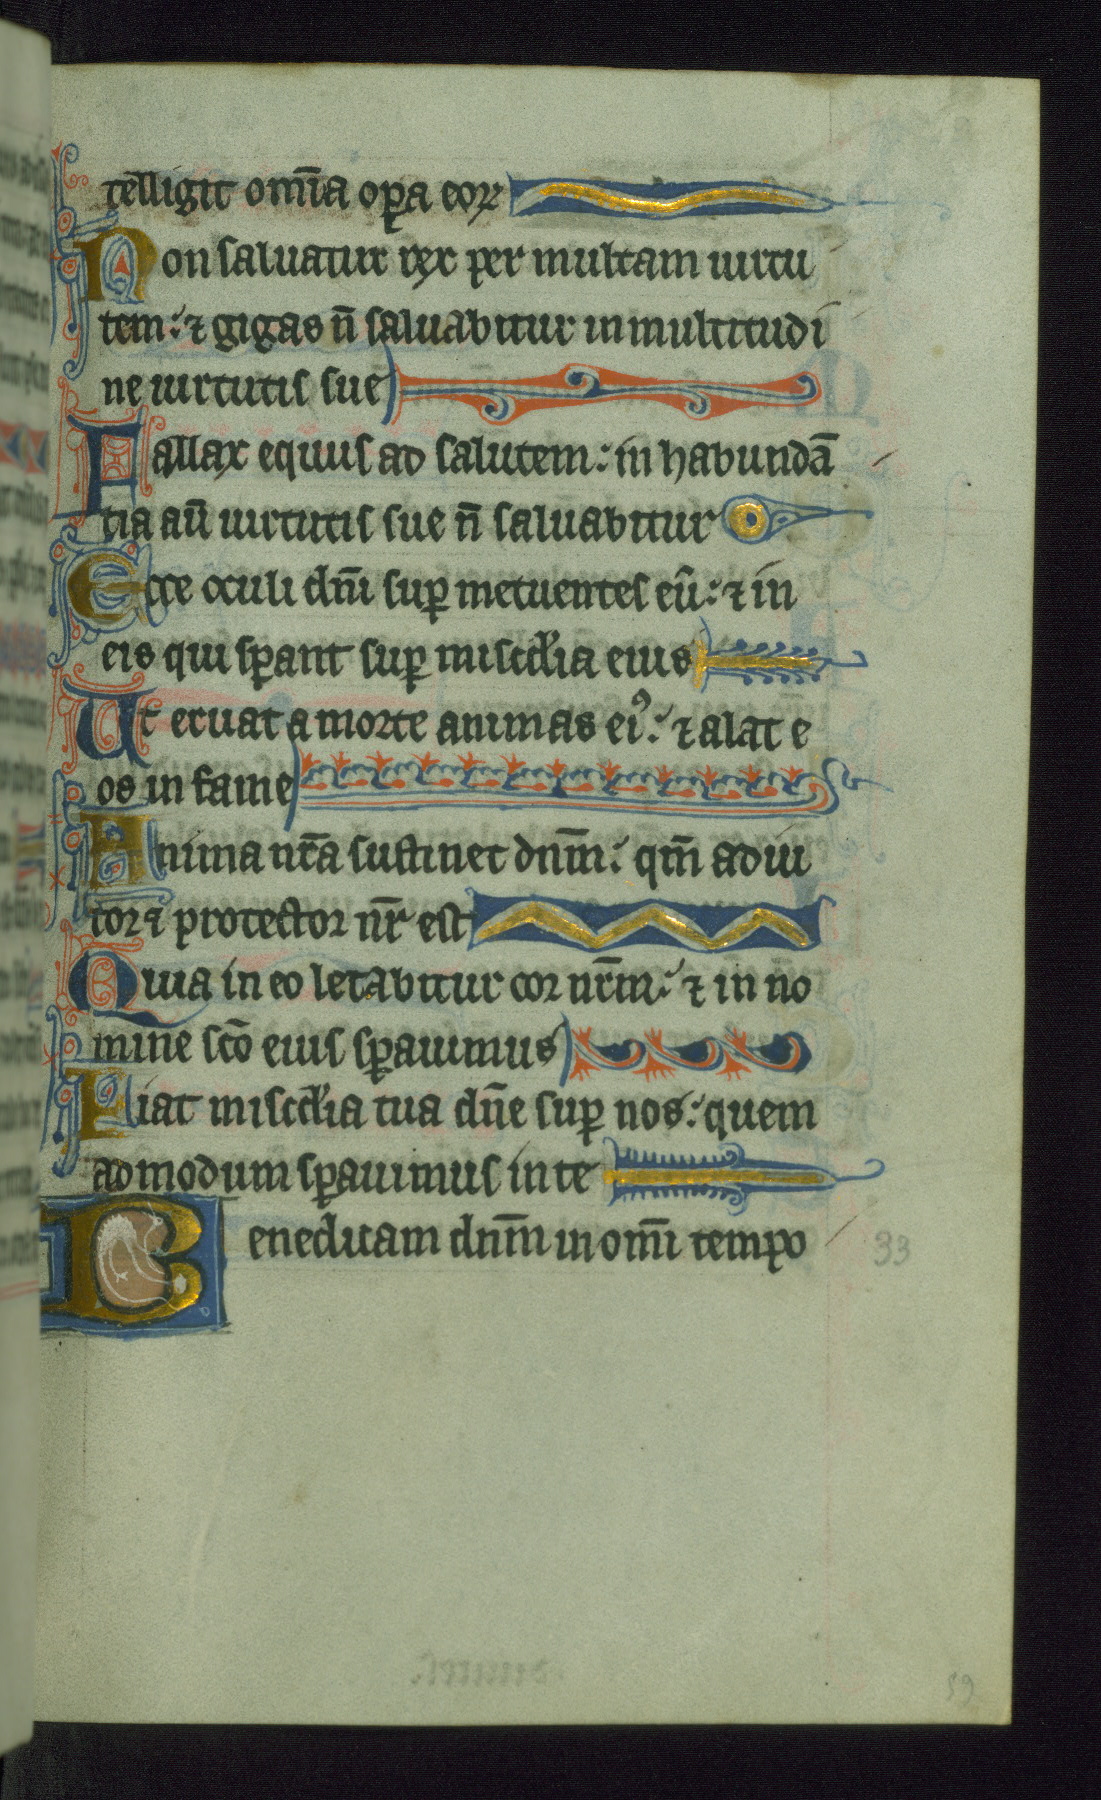 telligit om̄ia oꝑa eoꝝ
Non saluatur rex per multam uirtu
tem: ⁊ gigas n̄ saluabitur in multitudi
ne uirtutis sue
Fallax equus ad salutem: in habundā
tia aū uirtutis sue n̄ saluabitur
Ecce oculi dn̄i suꝑ metuentes eū: ⁊ in
eis qui sꝑant suꝑ misc̄dia eius
Ut eruat a morte animas eiꝰ: ⁊ alat e
os in fame
Anima nr̄a sustinet dnm̄: qm̄ adiu
tor ⁊ protector nr̄ est
Quia in eo letabitur cor nr̄m: ⁊ in no
mine sc̄o eius sꝑauimus
Fiat misc̄dia tua dn̄e suꝑ nos: quem
admodum sꝑauimus in te
Benedicam dnm̄ in om̄i tempo
33
59